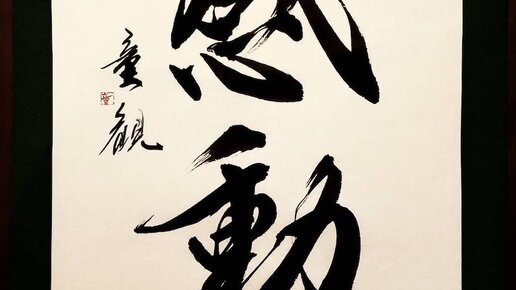 感動
童観